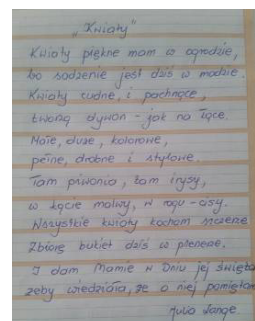 „Kwiaty"
Kwiaty piękne mam w ogrodzie,
bo sadzenie jest dziś w modzie.
Kwiaty cudne, i pachnące,
tworzą dywan - jak na łące.
Małe, duże, kolorowe,
pełne, drobne i stylowe.
Tam piwonia, tam irysy,
w kącie malwy, w rogu - cisy.
Wszystkie kwiaty kocham szczerze
Zbiorę bukiet dziś w plenerze.
I dam Mamie w Dniu jej święta
żeby wiedziała, że o niej pamiętam
Julia Lange.